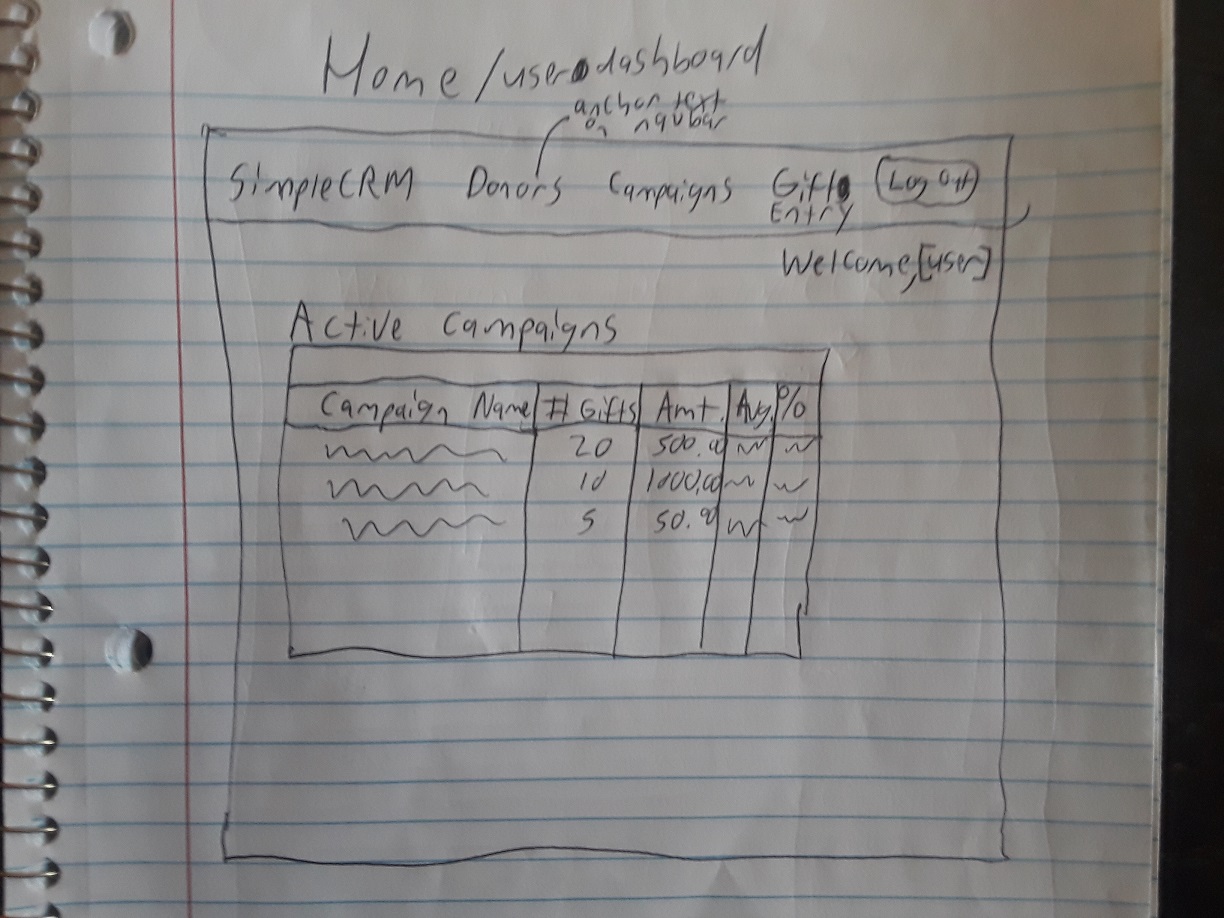 Home/user dashboard
anchor text
on navbar
SimpleCRM Donors Campaigns Gift Entry Log Out
Welcome, [user]
Active Campaigns
Campaign Name # Gifts Amt. Avg. %
20 500.00
10 1000.00
5 50.00